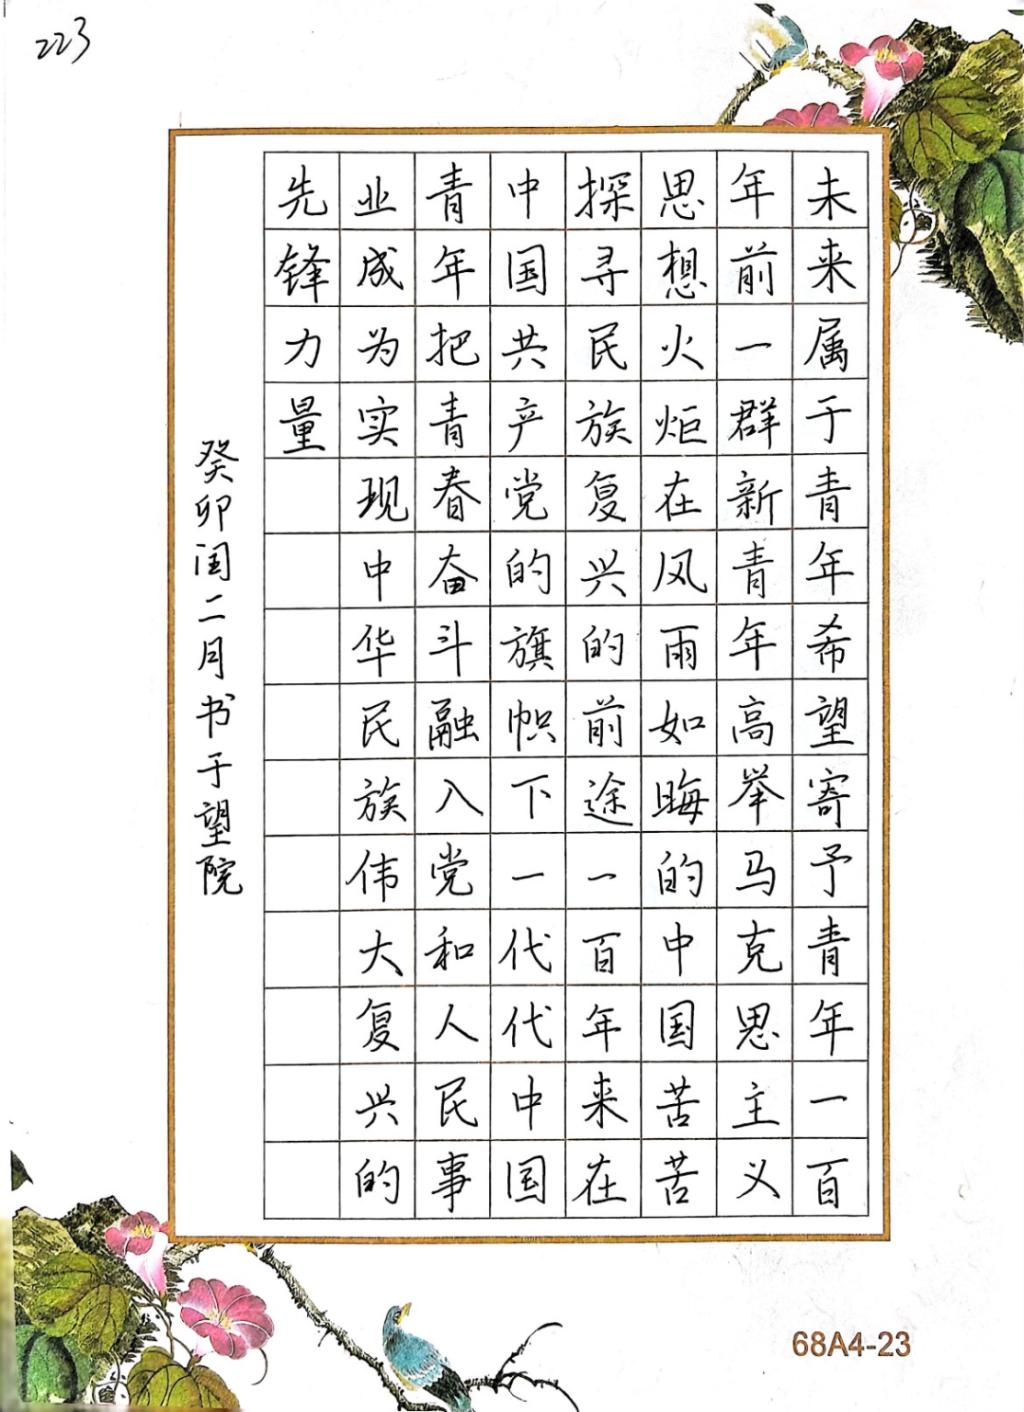 223
未来属于青年希望寄予青年一百
年前一群新青年高举马克思主义
思想火炬在风雨如晦的中国苦苦
探寻民族复兴的前途一百年来在
中国共产党的旗帜下一代代中国
青年把青春奋斗融入党和人民事
业成为实现中华民族伟大复兴的
先锋力量
癸卯闰二月书于望院
68A4-23